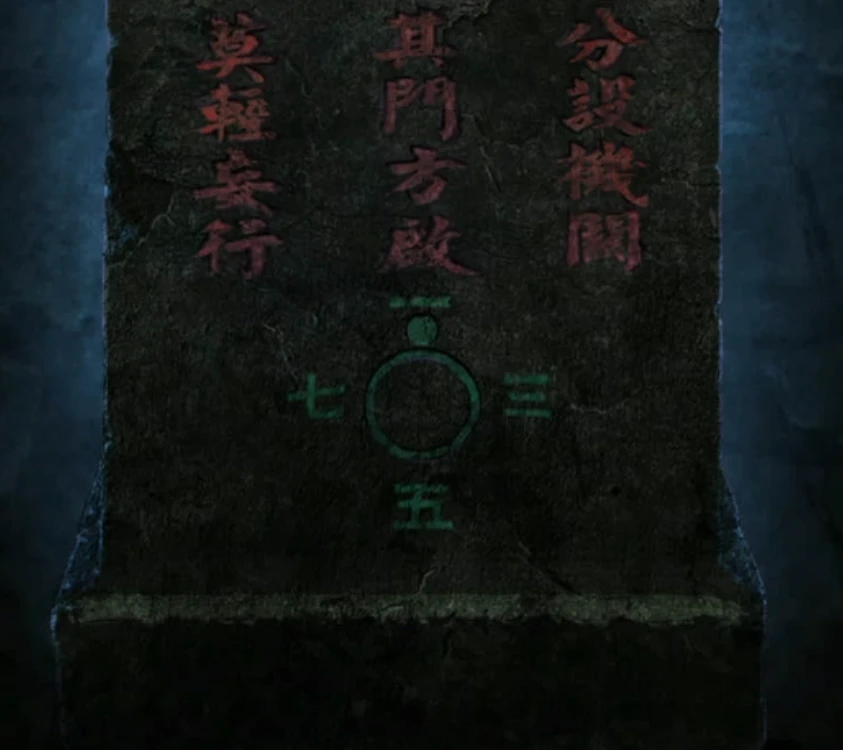 分設機關
其門方啟
莫輕妄行
一
七
三
五